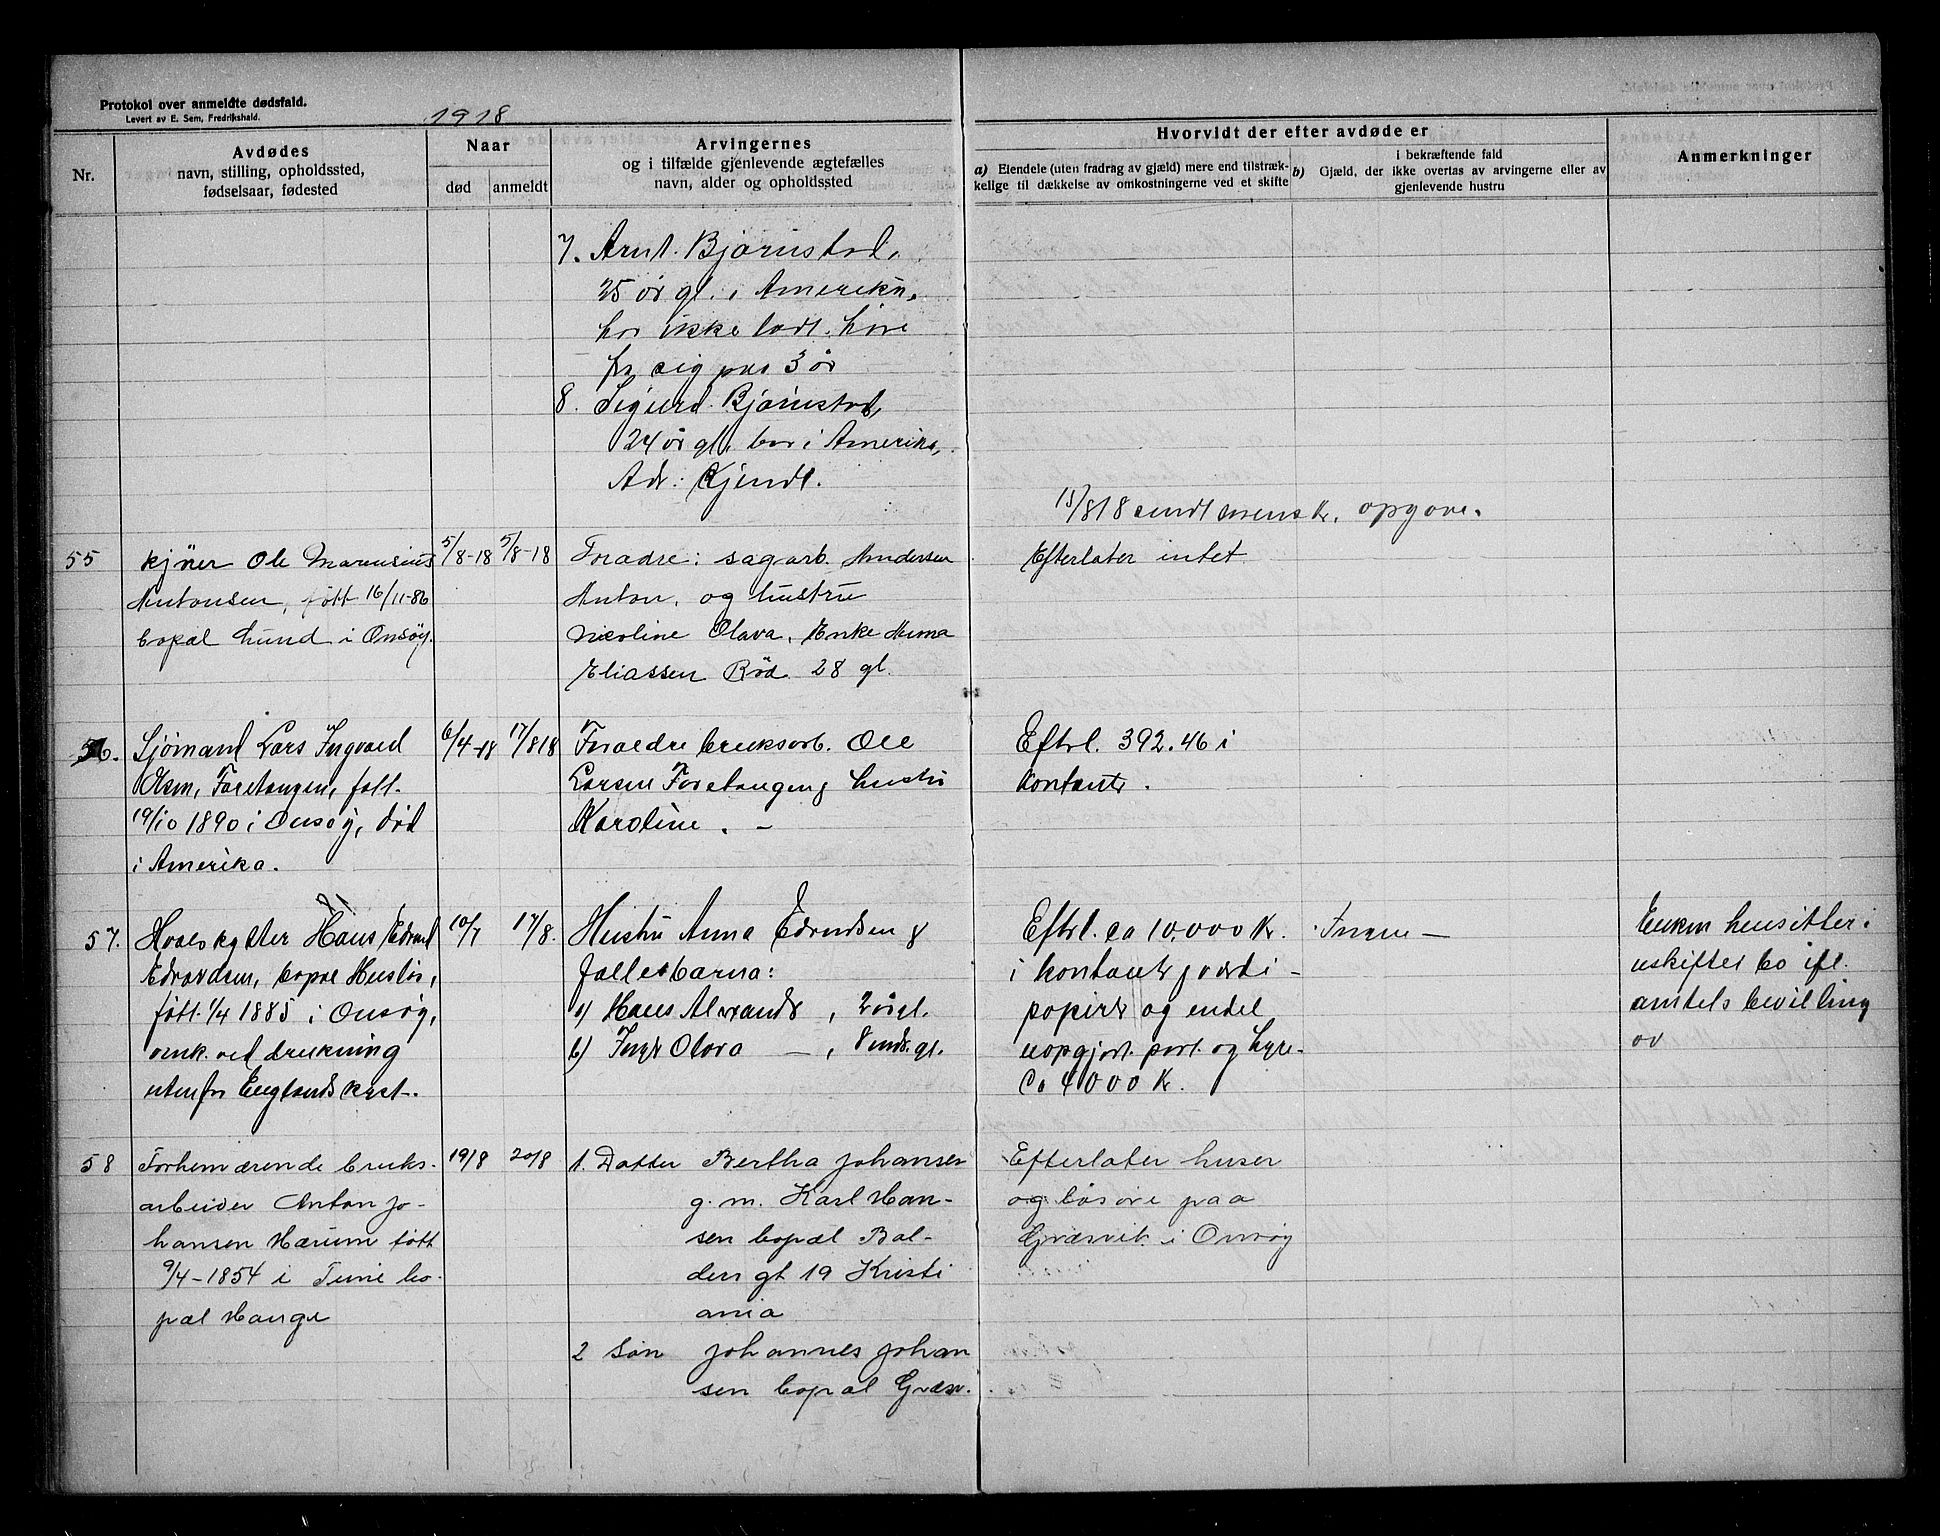 Protokol over anmeldte dødsfald.
Levert av E. Sem, Fredrikshald.
1918
Nr.
Avdødes
navn, stilling, opholdssted,
fødselsaar, fødested
Naar
død
anmeldt
Arvingernes
og i tilfælde gjenlevende ægtefælles
navn, alder og opholdssted
Hvorvidt der efter avdøde er
a) Eiendele (uten fradrag av gjæld) mere end tilstræk-
kelige til dækkelse av omkostningerne ved et skifte
b) Gjæld, der i bekræftende fald ikke overtas av arvingerne eller av
gjenlevende hustru
Anmerkninger
7. Arnt Bjørnstad,
25 år gl. i Amerika,
har ikke ladt høre
fra sig paa 3 år
8. Sigurd Bjørnstad,
24 år gl, bor i Amerika,
Adr: Kjendt.
15/8 18 sendt opgave.
55
Kjører Ole
Antonsen, født 16/11-86
bopæl Lund i Onsøy.
5/8-18
5/8-18
Foradre: sagarb. Andersen
Anton, og hustru
Nicoline Olava. Enke Anna
Eliassen Rød 28 gl.
Efterlater intet
56.
Sjømand Lars Ingvald
Olsen, Foretangen, født
19/10 1890 i Onsøy, død
i Amerika.
6/4-18
17/8 18
Foraldre bruksarb. Ole
Larsen Foretangen & hustru
Karoline. -
Efterl. 392.46 i
kontanter.
57.
Hvalskytter Hans Edvard
Edvardsen, bopæl Husløs,
født 1/4 1885 i Onsøy,
omk. ved drukning
utenfor Englands kyst.
10/7
17/8.
Hustru Anna Edvardsen &
fællesbarna:
a) Hans Alexander, 2 år gl.
b) Inger Olava —, 8 mdr. gl.
Efterl. ca 10.000 Kr.
i kontanter & værdi-
papirer og endel
uopgjort part. og hyre-
ca 4000 Kr.
Ingen —
Enken hensitter i
uskiftet bo ifl.
amtets bevilling
av
58
Forhenværende bruks-
arbeider Anton Jo-
hansen Hærum født
9/4-1854 i Tune bo-
pæl Hauge
19/8
20/8
1. Datter Bertha Johansen
g. m. Karl Han-
sen bopæl Bal-
dersgt 19 Kristi
ania
2 Søn Johannes Johan
sen bopæl Græsv.
Efterlater huser
og løsøre paa
Græsvik i Onsøy